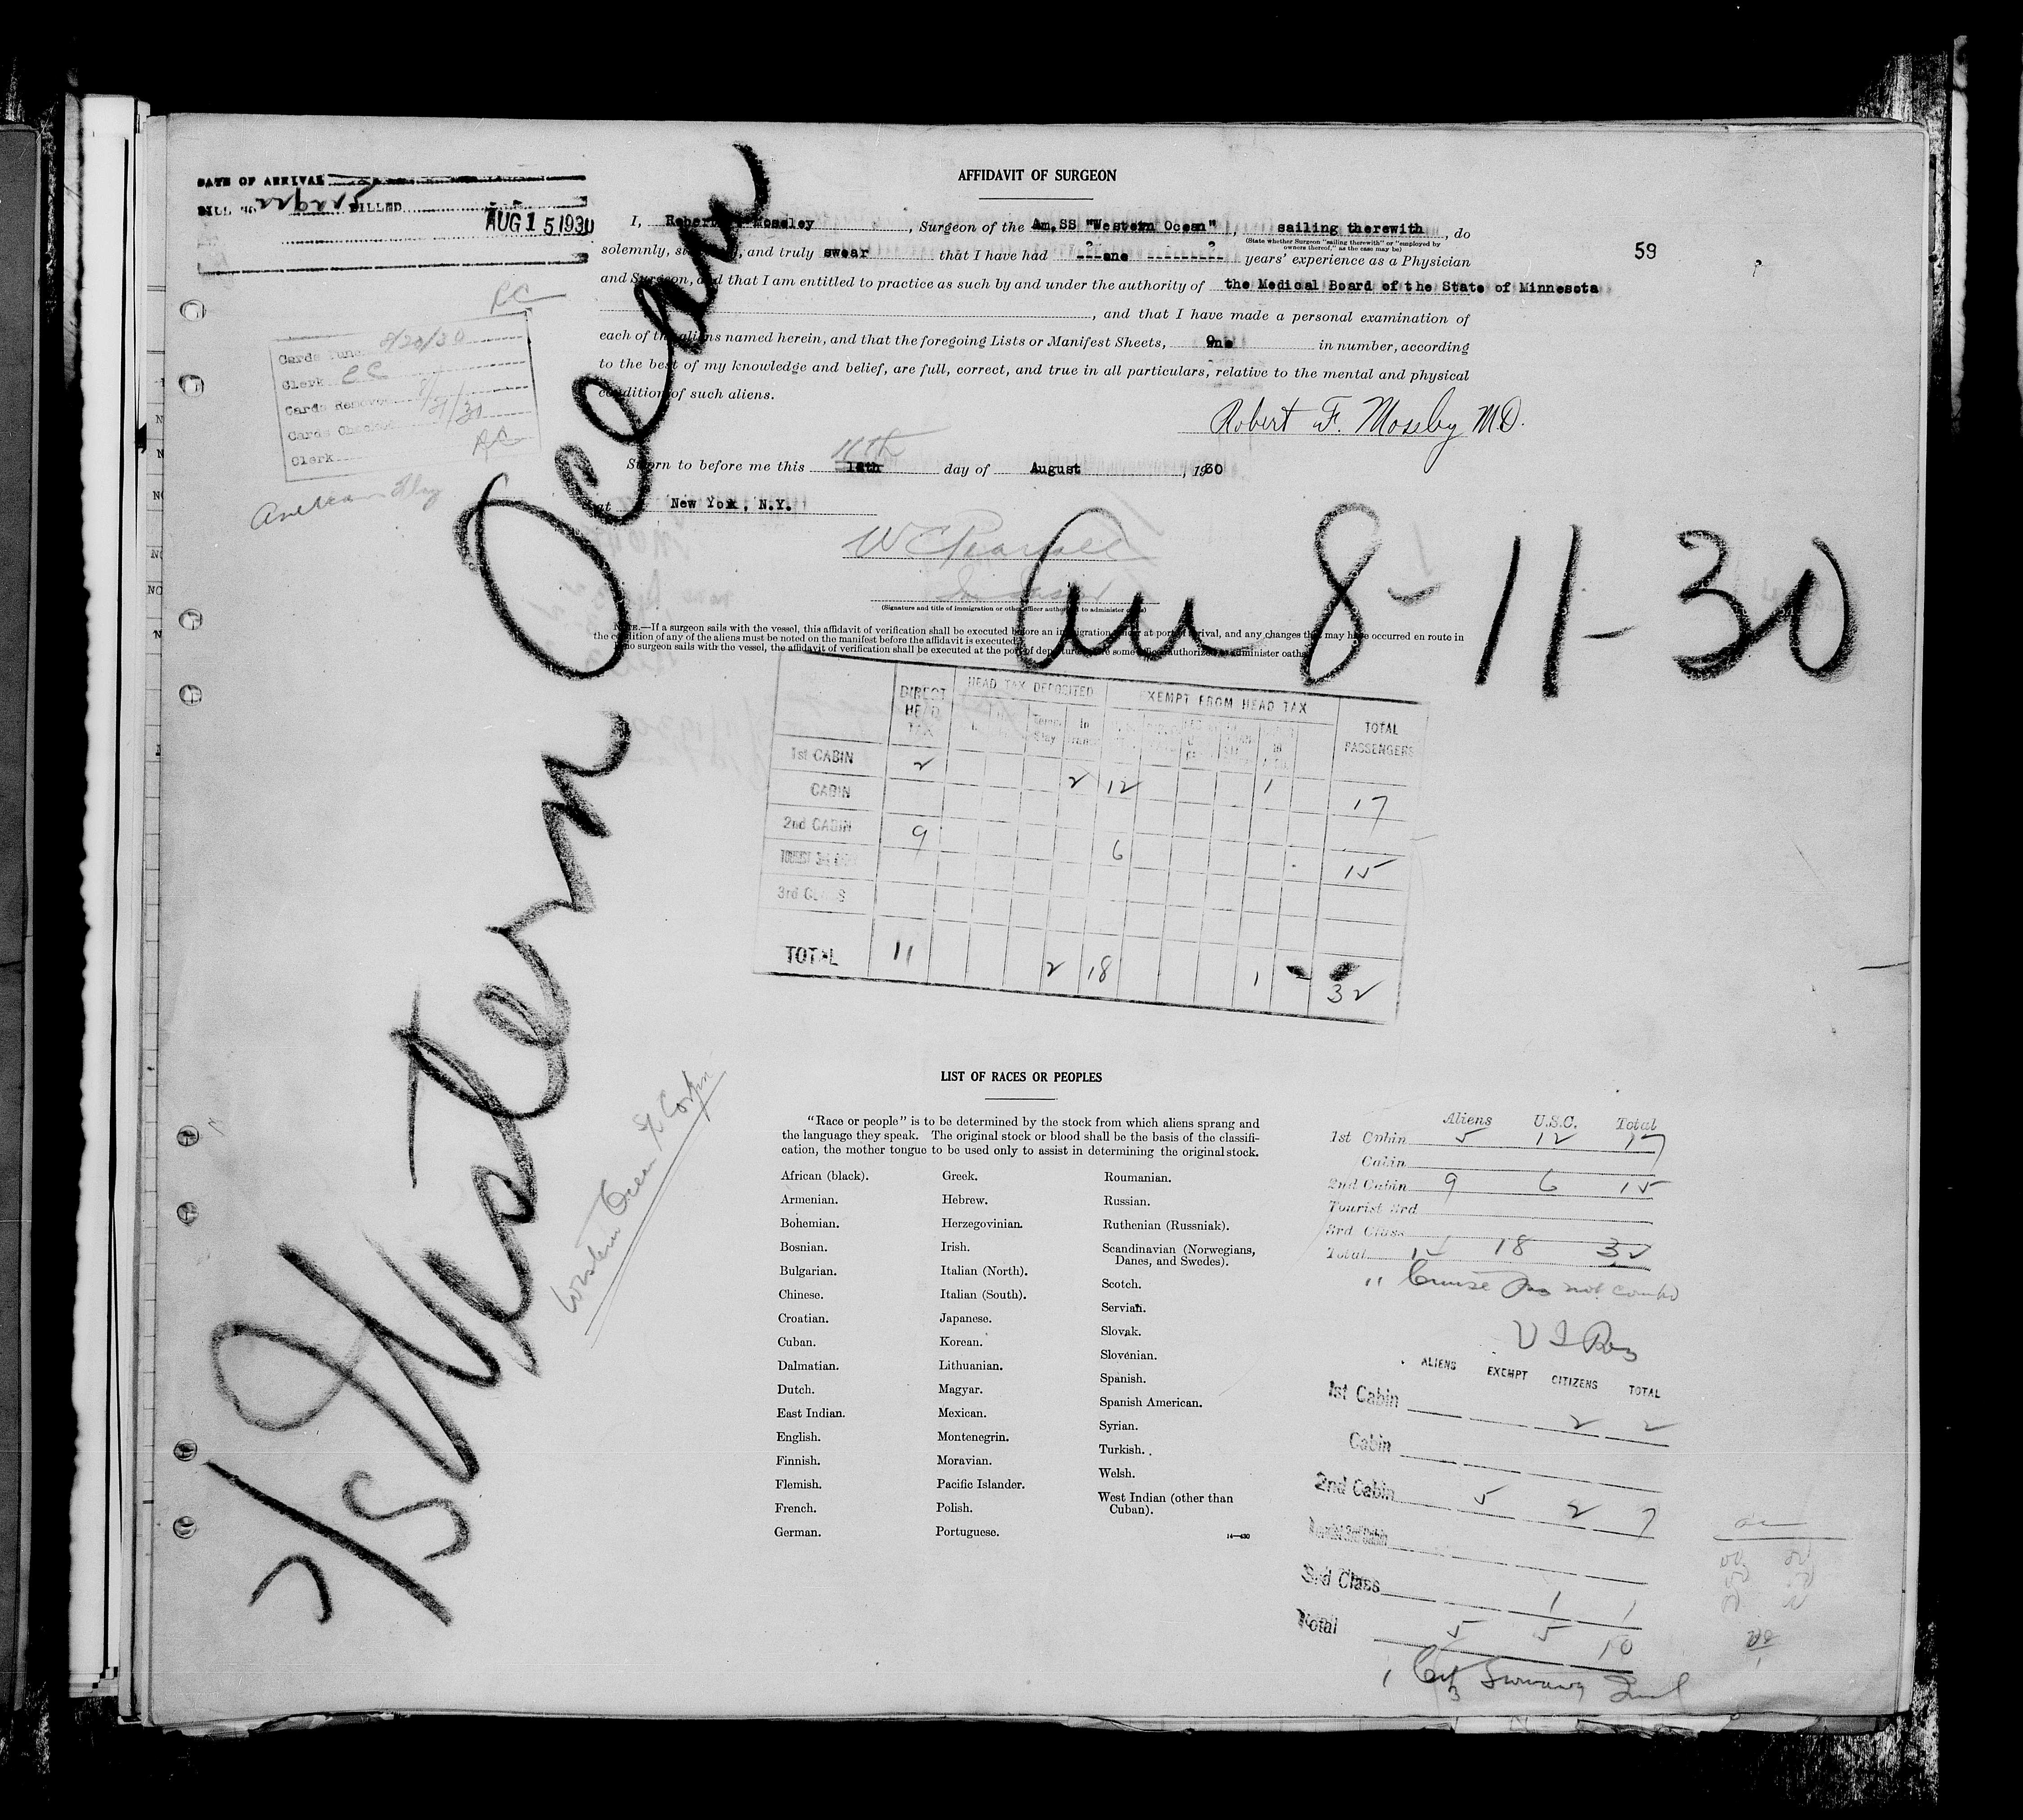 DATE OF ARRIVAL
BILL NO. BILLED
AUG 15 1930
AFFIDAVIT OF SURGEON
59
I, Robert Moseley, Surgeon of the Am.SS "Western Ocean", sailing therewith, do
(State whether Surgeon "sailing therewith" or "employed by
owners thereof," as the case may be)
solemnly, and truly swear that I have had ---one --------- years' experience as a Physician
and Surgeon, and that I am entitled to practice as such by and under the authority of the Medical Board of the State of Minnesota
, and that I have made a personal examination of
each of the aliens named herein, and that the foregoing Lists or Manifest Sheets, One in number, according
to the best of my knowledge and belief, are full, correct, and true in all particulars, relative to the mental and physical
condition of such aliens.
Robert F. Moseby M.D.
RC
Cards Punc 8/20/30
Clerk C C
Cards Removed
Cards Checked 8/21/30
Clerk RC
American Flag
Sworn to before me this 11th day of August, 1930
at New York, N.Y.
(Signature and title of immigration or other officer authorized to administer oaths)
S/S Western Ocean
Arr 8-11-30
NOTE.—If a surgeon sails with the vessel, this affidavit of verification shall be executed before an immigration officer at port of arrival, and any changes that may have occurred en route in
the condition of any of the aliens must be noted on the manifest before the affidavit is executed.
If no surgeon sails with the vessel, the affidavit of verification shall be executed at the port of departure before some officer authorized to administer oaths.
DIRECT HEAD TAX HEAD TAX DEPOSITED EXEMPT FROM HEAD TAX TOTAL PASSENGERS
Temp. Stay In Transit
1st CABIN 2 2 12 1 17
CABIN
2nd CABIN 9 6 15
TOURIST 3rd CABIN
3rd CLASS
TOTAL 11 2 18 1 32
Western Ocean SS Corpn
LIST OF RACES OR PEOPLES
"Race or people" is to be determined by the stock from which aliens sprang and
the language they speak. The original stock or blood shall be the basis of the classifi-
cation, the mother tongue to be used only to assist in determining the original stock.
African (black).
Armenian.
Bohemian.
Bosnian.
Bulgarian.
Chinese.
Croatian.
Cuban.
Dalmatian.
Dutch.
East Indian.
English.
Finnish.
Flemish.
French.
German.
Greek.
Hebrew.
Herzegovinian.
Irish.
Italian (North).
Italian (South).
Japanese.
Korean.
Lithuanian.
Magyar.
Mexican.
Montenegrin.
Moravian.
Pacific Islander.
Polish.
Portuguese.
Roumanian.
Russian.
Ruthenian (Russniak).
Scandinavian (Norwegians,
Danes, and Swedes).
Scotch.
Servian.
Slovak.
Slovenian.
Spanish.
Spanish American.
Syrian.
Turkish.
Welsh.
West Indian (other than
Cuban).
14—430
Aliens U.S.C. Total
1st Cabin 5 12 17
Cabin
2nd Cabin 9 6 15
Tourist 3rd
3rd Class
Total 14 18 32
Cruise Pas not
ALIENS EXEMPT CITIZENS TOTAL
1st Cabin 2 2
Cabin
2nd Cabin 5 2 7
Tourist 3rd Cabin
3rd Class 1 1
Total 5 5 10